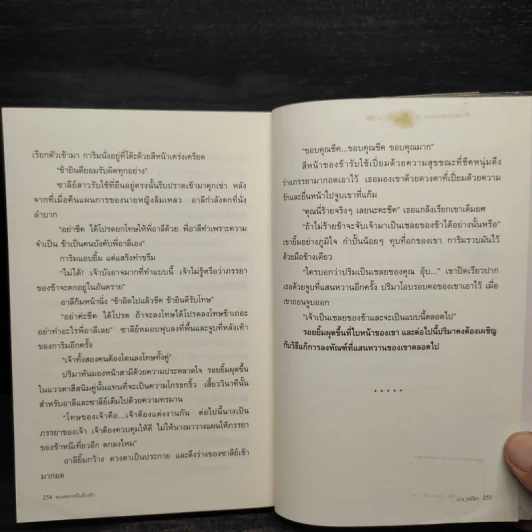 เรียกตัวเข้ามา การิมนั่งอยู่ที่โต๊ะด้วยสีหน้าเคร่งเครียด
"ข้ายินดียอมรับผิดทุกอย่าง"
ซาลีย์สาวรับใช้ที่ยืนอยู่ตรงนั้นรีบปราดเข้ามาคุกเข่า หลัง
จากที่เมื่อคืนแผนการของนายหญิงล้มเหลว อาลีกำลังตกที่นั่ง
ลำบาก
"อย่าชีค ได้โปรดยกโทษให้พี่อาลีด้วย พี่อาลีทำเพราะความ
จำเป็น ข้าเป็นคนบังคับพี่อาลีเอง"
การิมแอบยิ้ม แต่แสร้งทำขรึม
"ไม่ได้! เจ้าบังอาจมากที่ทำแบบนี้ เจ้าไม่รู้หรือว่าภรรยา
ของข้าจะตกอยู่ในอันตราย"
อาลีก้มหน้านิ่ง "ข้าผิดไปแล้วชีค ข้ายินดีรับโทษ"
"อย่าค่ะชีค ได้โปรด ถ้าจะลงโทษได้โปรดลงโทษข้าเถอะ
อย่าทำอะไรพี่อาลีเลย" ซาลีย์หมอบฟุบลงที่พื้นและจูบที่หลังเท้า
ของการิมอีกครั้ง
"เจ้าทั้งสองคนต้องโดนลงโทษทั้งคู่"
ปริมาหันมองหน้าสามีด้วยความประหลาดใจ รอยยิ้มผุดขึ้น
ในแววตาสีสนิมคู่นั้นแทนที่จะเป็นความโกรธกริ้ว เสี้ยววินาทีนั้น
สำหรับอาลีและซาลีย์เต็มไปด้วยความทรมาน
"โทษของเจ้าคือ...เจ้าต้องแต่งงานกัน ต่อไปนี้นางเป็น
ภรรยาของเจ้า เจ้าต้องควบคุมให้ดี ไม่ให้นางมาวางแผนให้ภรรยา
ของข้าหนีเที่ยวอีก ตกลงไหม"
อาลียิ้มกว้าง ดวงตาเป็นประกาย และดึงร่างของซาลีย์เข้า
มากอด
254
"ขอบคุณชีค...ขอบคุณชีค ขอบคุณมาก"
สีหน้าของข้ารับใช้เปี่ยมด้วยความสุขขณะที่ชีคหนุ่มดึง
ร่างภรรยามากอดเอาไว้ เธอมองเขาด้วยดวงตาที่เปี่ยมด้วยความ
รักและยื่นหน้าไปจูบเขาที่แก้ม
"คุณนี่ร้ายจริงๆ เลยนะคะชีค" เธอแกล้งเรียกเขาเต็มยศ
"ถ้าไม่ร้ายข้าจะจับเจ้ามาเป็นเชลยของข้าได้อย่างนั้นหรือ"
เขายิ้มอย่างภูมิใจ กำปั้นน้อยๆ ทุบที่อกของเขา การิมรวบมันไว้
ด้วยมือข้างเดียว
"ใครบอกว่าปริมเป็นเชลยของคุณ อุ๊บ..." เขาปิดเรียวปาก
เธอด้วยจูบที่แสนหวานอีกครั้ง ปริมาโอบรอบคอของเขาเอาไว้ เมื่อ
เขาถอนจูบออก
"เจ้าเป็นเชลยของข้าและจะเป็นแบบนี้ตลอดไป"
รอยยิ้มผุดขึ้นที่ใบหน้าของเขา และต่อไปนี้ปริมาคงต้องเผชิญ
กับวิธีแก้การลงทัณฑ์ที่แสนหวานของเขาตลอดไป
.....
255